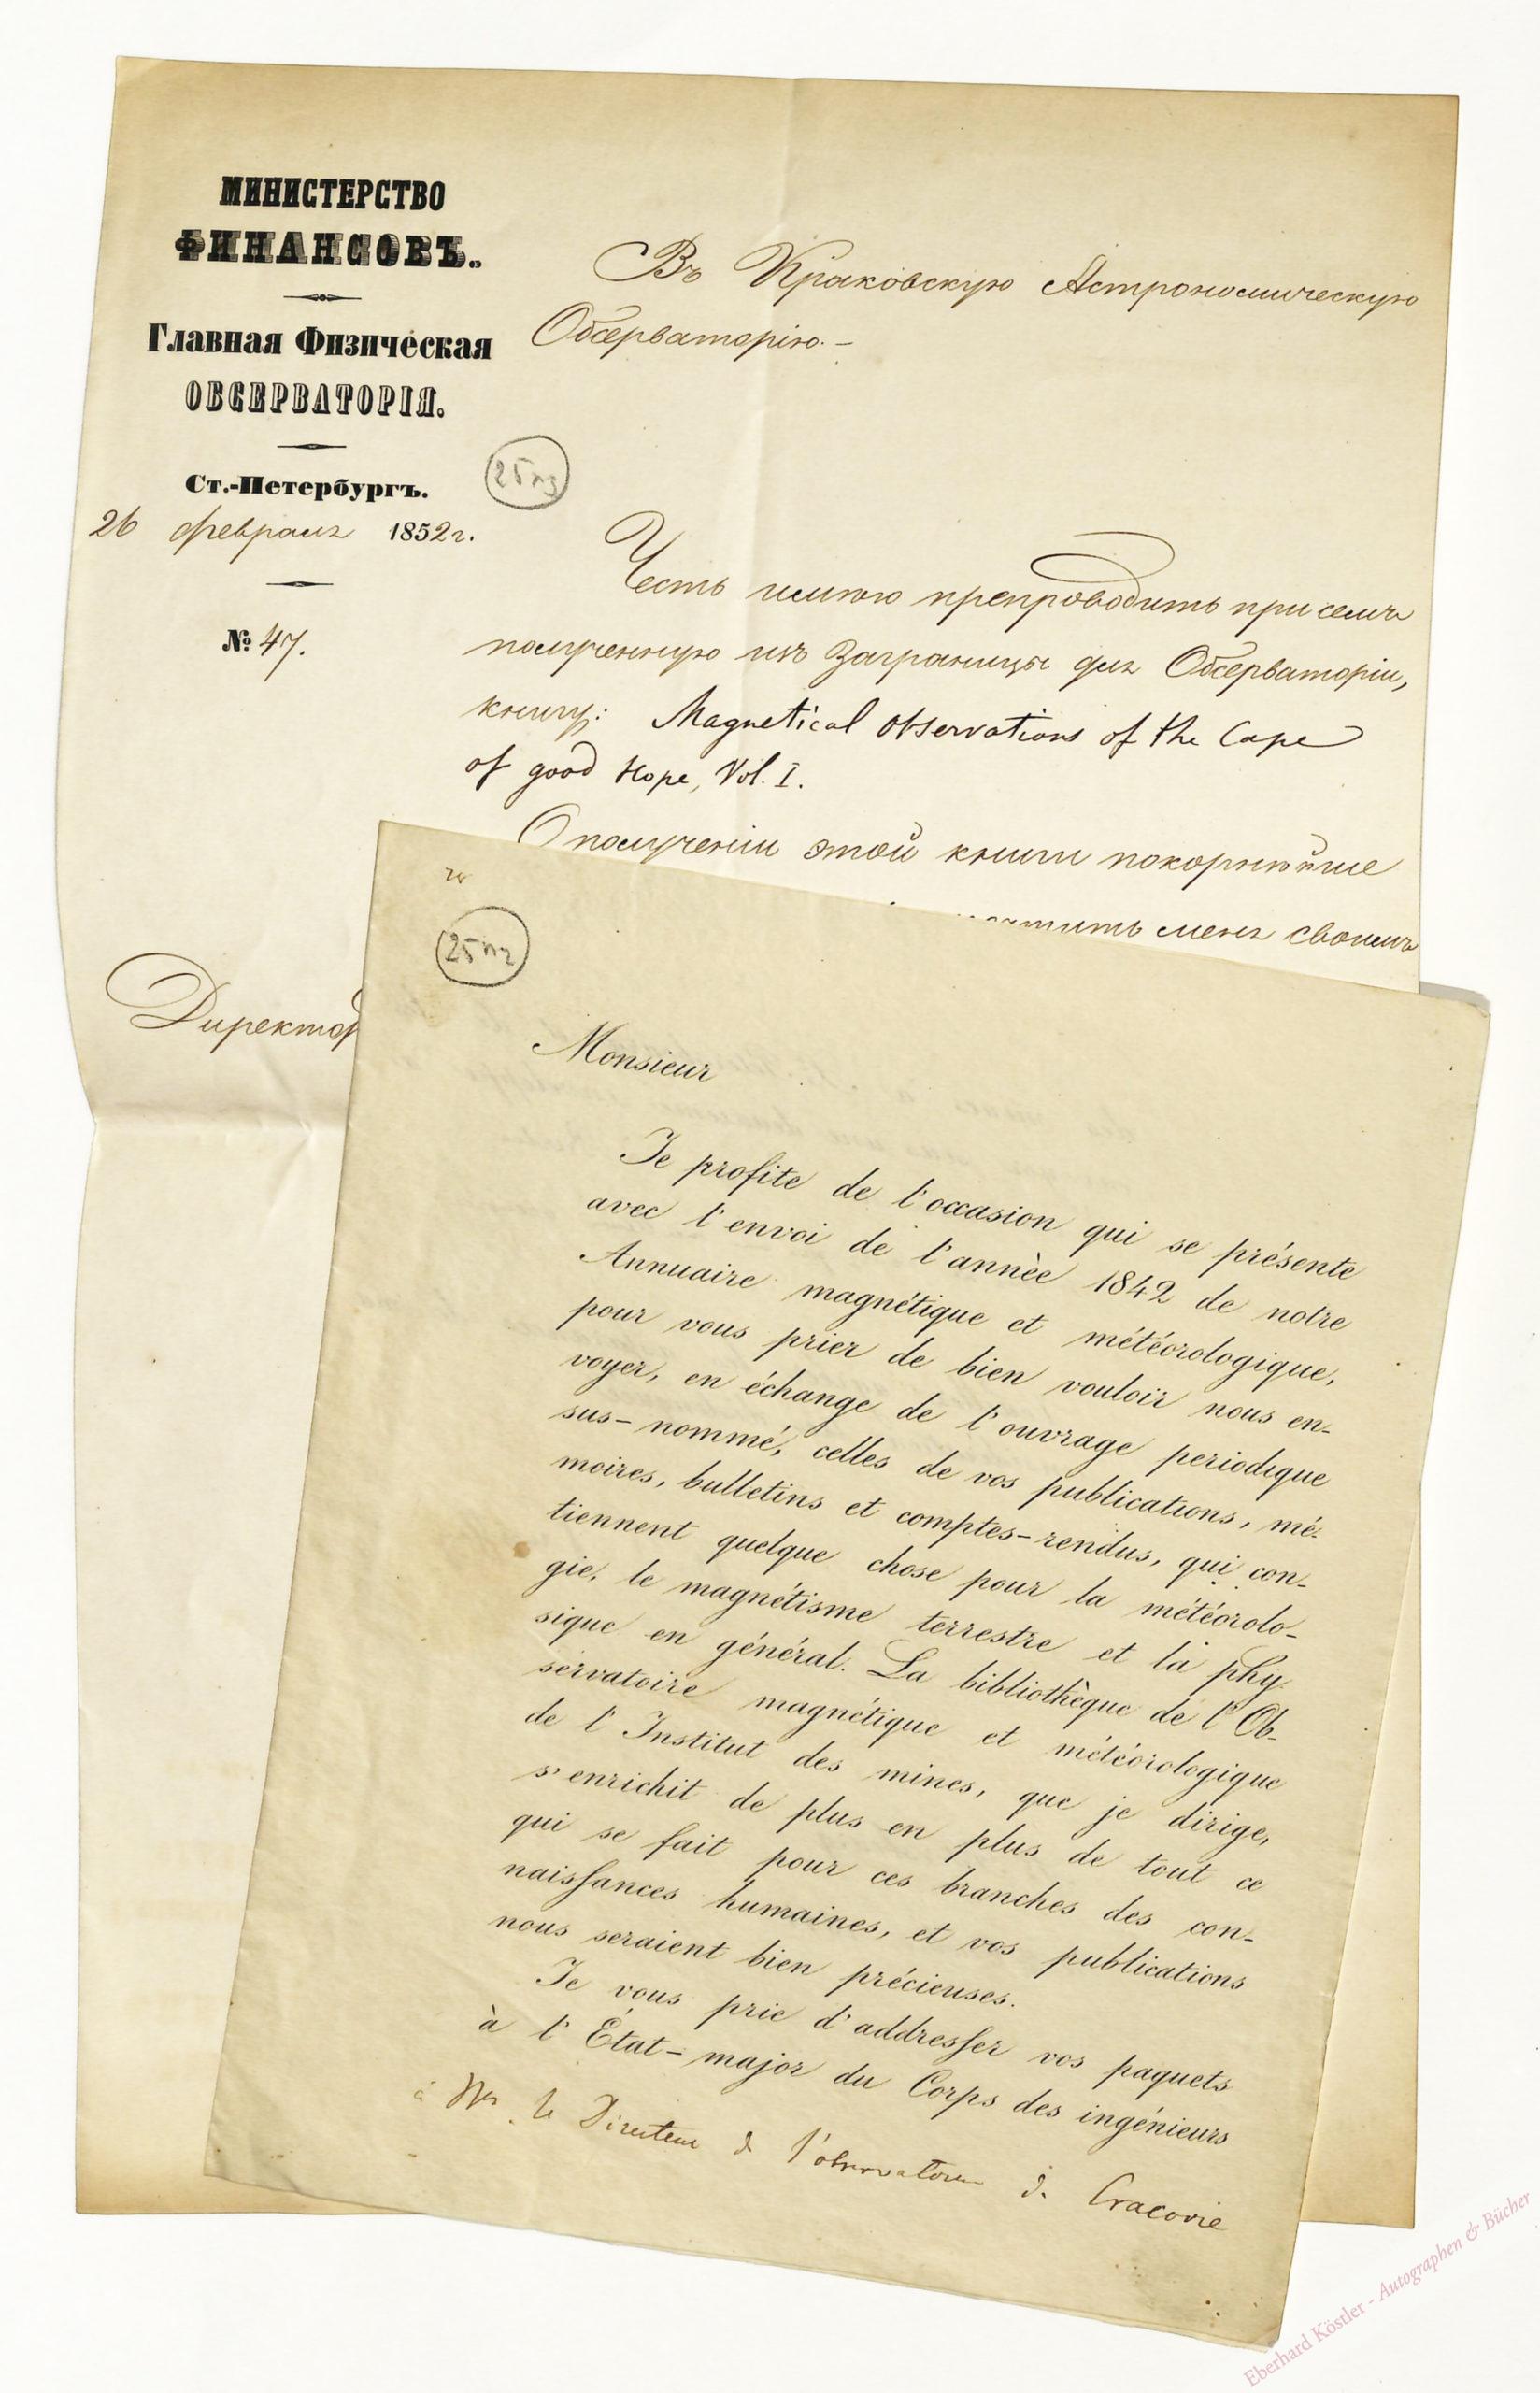 МИНИСТЕРСТВО
ФИНАНСОВЪ.
Главная Физическая
ОБСЕРВАТОРІЯ.
Ст.-Петербургъ.
26 февраля 1852 г.
№ 47.
Въ Краковскую Астрономическую
Обсерваторію.-
25 n3
Честь имѣю препроводить при семъ
полученную изъ Заграницы для Обсерваторіи,
книгу: Magnetical Observations of the Cape
of good Hope, Vol. I.
О полученіи этой книги покорнѣйше
меня своимъ
Директор
25 n2
Monsieur
Je profite de l'occasion qui se présente
avec l'envoi de l'annèe 1842 de notre
Annuaire magnétique et météorologique,
pour vous prier de bien vouloir nous en-
voyer, en échange de l'ouvrage periodique
sus-nommé, celles de vos publications, mé-
moires, bulletins et comptes-rendus, qui con-
tiennent quelque chose pour la météorolo-
gie, le magnétisme terrestre et la phy-
sique en général. La bibliothèque de l'Ob-
servatoire magnétique et météorologique
de l'Institut des mines, que je dirige,
s'enrichit de plus en plus de tout ce
qui se fait pour ces branches des con-
naissances humaines, et vos publications
nous seraient bien précieuses.
Je vous prie d'addresser vos paquets
à l'État-major du Corps des ingénieurs
à Mr. le Directeur de l'observatoire de Cracovie
Eberhard Köstler - Autographen & Bücher